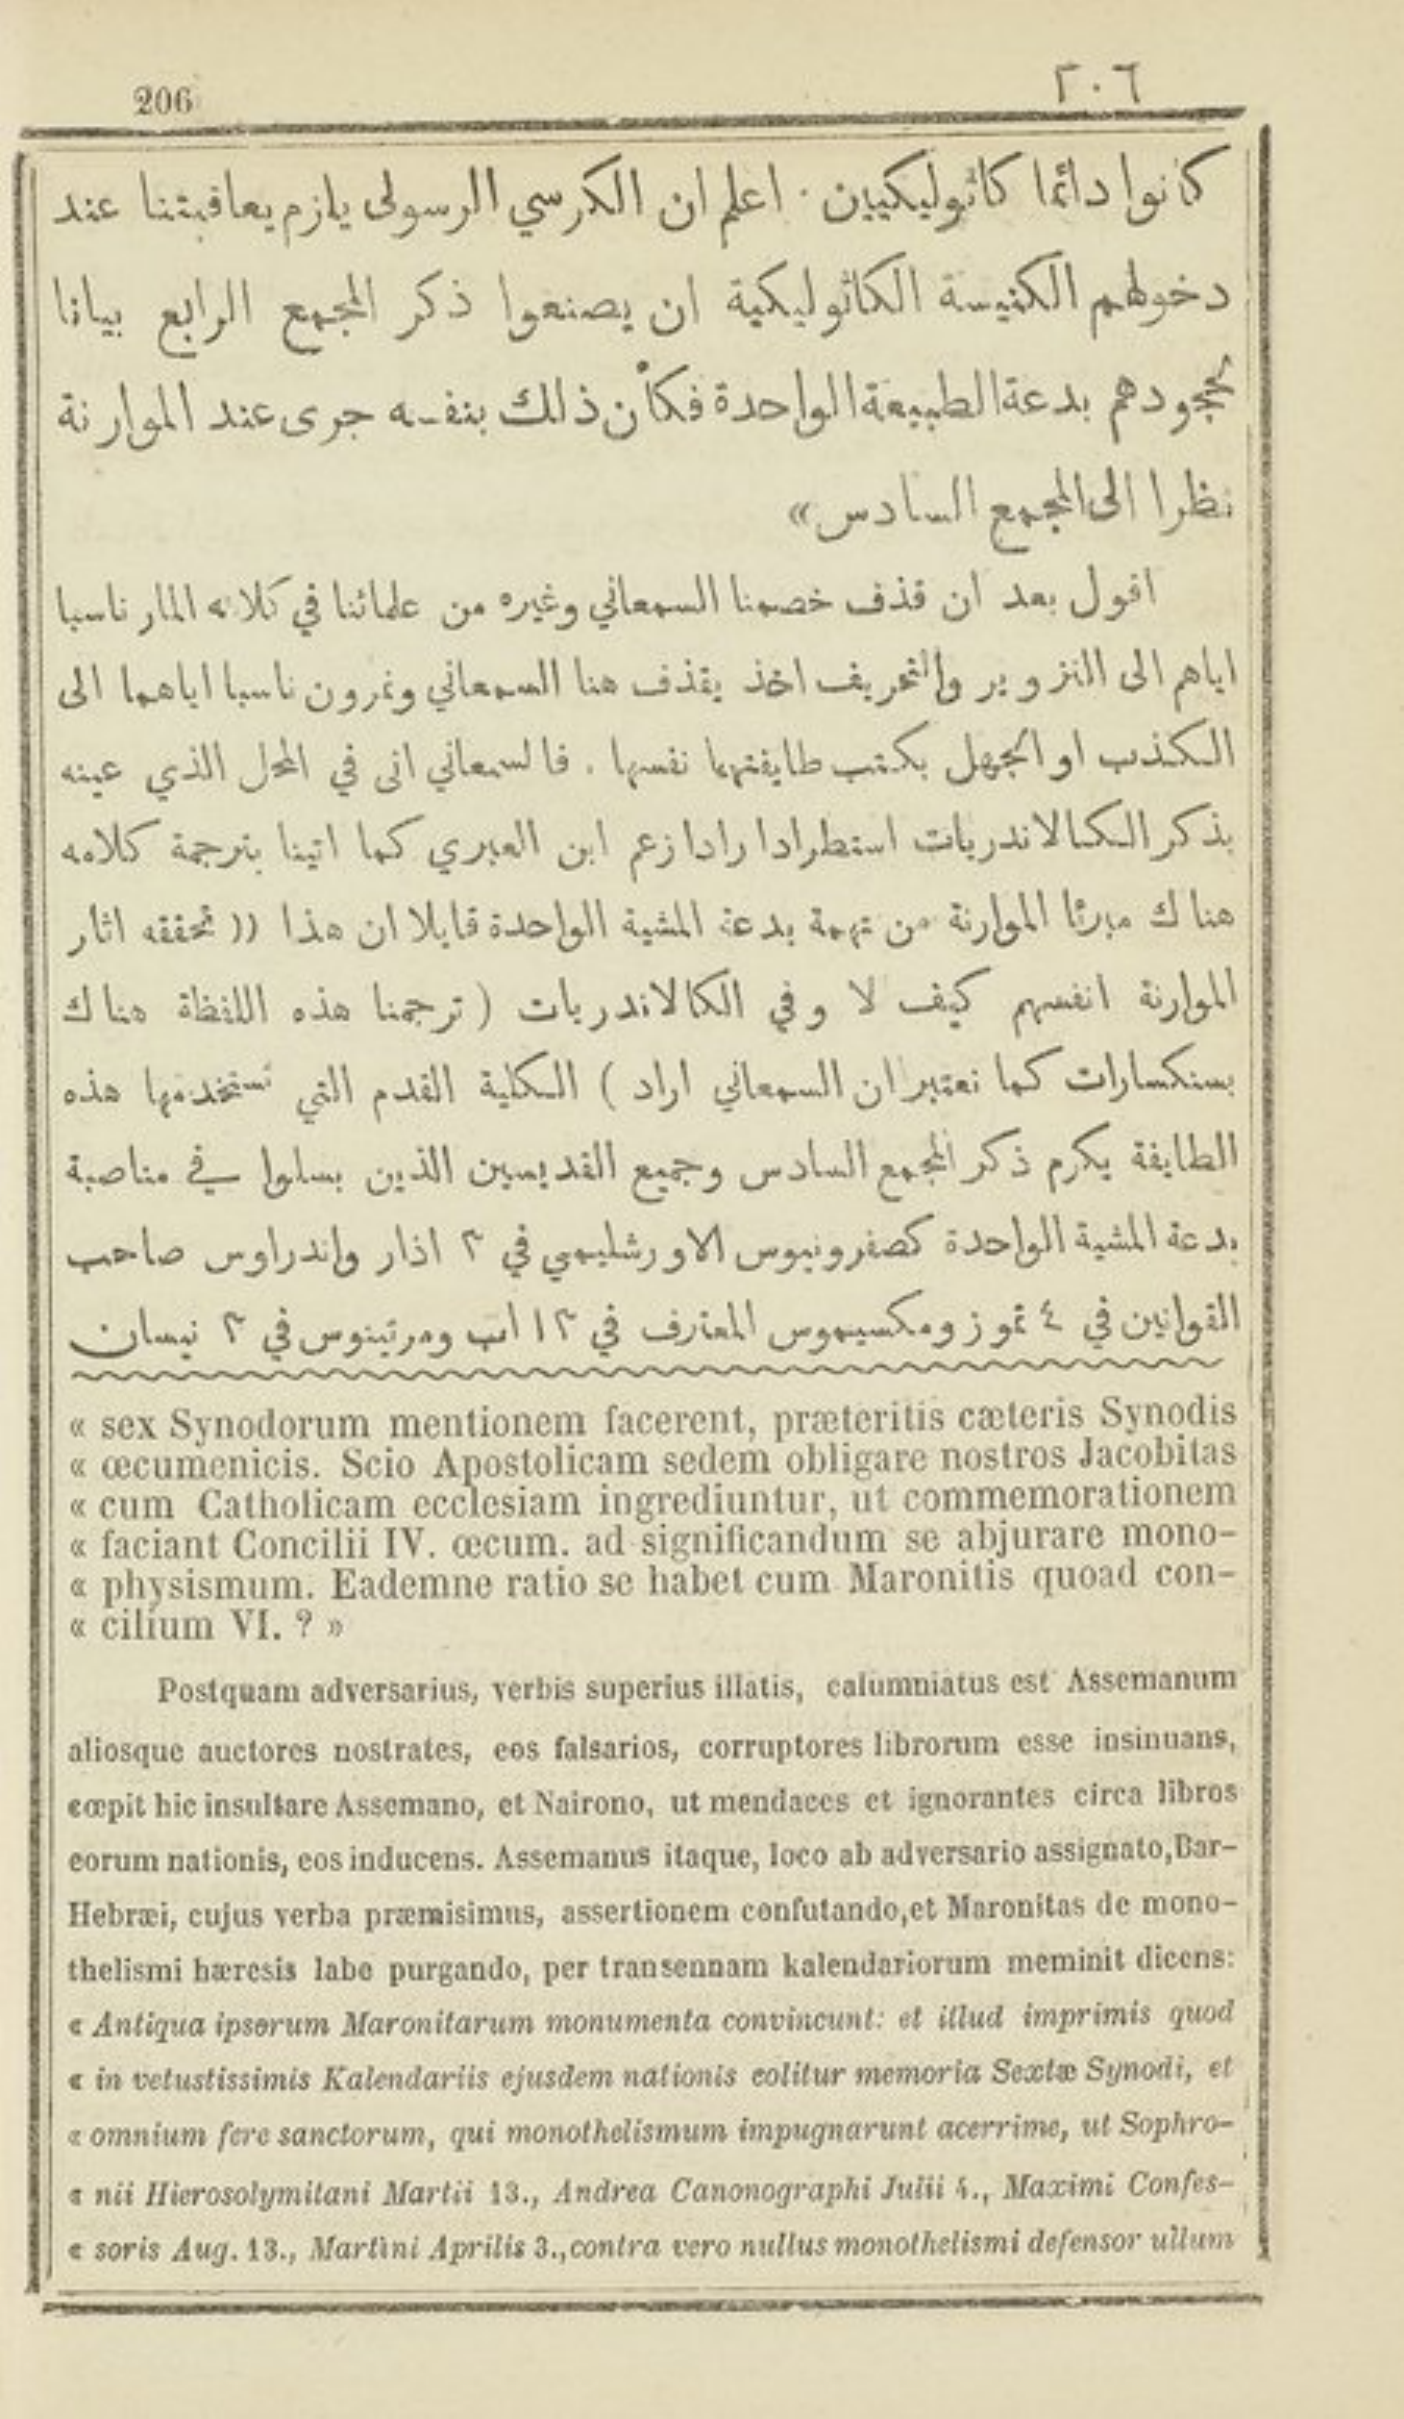 206
٢٠٦
كانوا دائما كاثوليكيين . اعلم ان الكرسي الرسولى يلزم يعاقبتنا عند
دخولهم الكنيسة الكاثوليكية ان يصنعوا ذكر المجمع الرابع بيانا
لجحودهم بدعة الطبيعة الواحدة فكأن ذلك بنفسه جرى عند الموارنة
نظرا الى المجمع السادس»
اقول بعد ان قذف خصمنا السمعاني وغيره من علمائنا في كلامه المار ناسبا
اياهم الى التزوير والتحريف اخذ يقذف هنا السمعاني ونمرون ناسبا اياهما الى
الكذب او الجهل بكتب طايفتهما نفسها . فالسمعاني اتى في المحل الذي عينه
بذكر الكالاندريات استطرادا رادا زعم ابن العبري كما اتينا بترجمة كلامه
هناك مبرئا الموارنة من تهمة بدعة المشية الواحدة قايلا ان هذا (( تحققه اثار
الموارنة انفسهم كيف لا وفي الكالاندريات ( ترجمنا هذه اللفظة هناك
بسنكسارات كما نعتبر ان السمعاني اراد ) الكلية القدم التي تستخدمها هذه
الطايفة يكرم ذكر المجمع السادس وجميع القديسين الذين بسلوا في مناصبة
بدعة المشية الواحدة كصفرونيوس الاورشليمي في ٣ اذار واندراوس صاحب
القوانين في ٤ تموز ومكسيموس المعترف في ١٣ اب ومرتينوس في ٣ نيسان
« sex Synodorum mentionem facerent, præteritis cæteris Synodis
« œcumenicis. Scio Apostolicam sedem obligare nostros Jacobitas
« cum Catholicam ecclesiam ingrediuntur, ut commemorationem
« faciant Concilii IV. œcum. ad significandum se abjurare mono-
« physismum. Eademne ratio se habet cum Maronitis quoad con-
« cilium VI. ? »
Postquam adversarius, verbis superius illatis, calumniatus est Assemanum
aliosque auctores nostrates, eos falsarios, corruptores librorum esse insinuans,
cœpit hic insultare Assemano, et Nairono, ut mendaces et ignorantes circa libros
eorum nationis, eos inducens. Assemanus itaque, loco ab adversario assignato, Bar-
Hebræi, cujus verba præmisimus, assertionem confutando, et Maronitas de mono-
thelismi hæresis labe purgando, per transennam kalendariorum meminit dicens:
« Antiqua ipsorum Maronitarum monumenta convincunt: et illud imprimis quod
« in vetustissimis Kalendariis ejusdem nationis colitur memoria Sextæ Synodi, et
« omnium fere sanctorum, qui monothelismum impugnarunt acerrime, ut Sophro-
« nii Hierosolymitani Martii 13., Andrea Canonographi Julii 4., Maximi Confes-
« soris Aug. 13., Martini Aprilis 3., contra vero nullus monothelismi defensor ullum